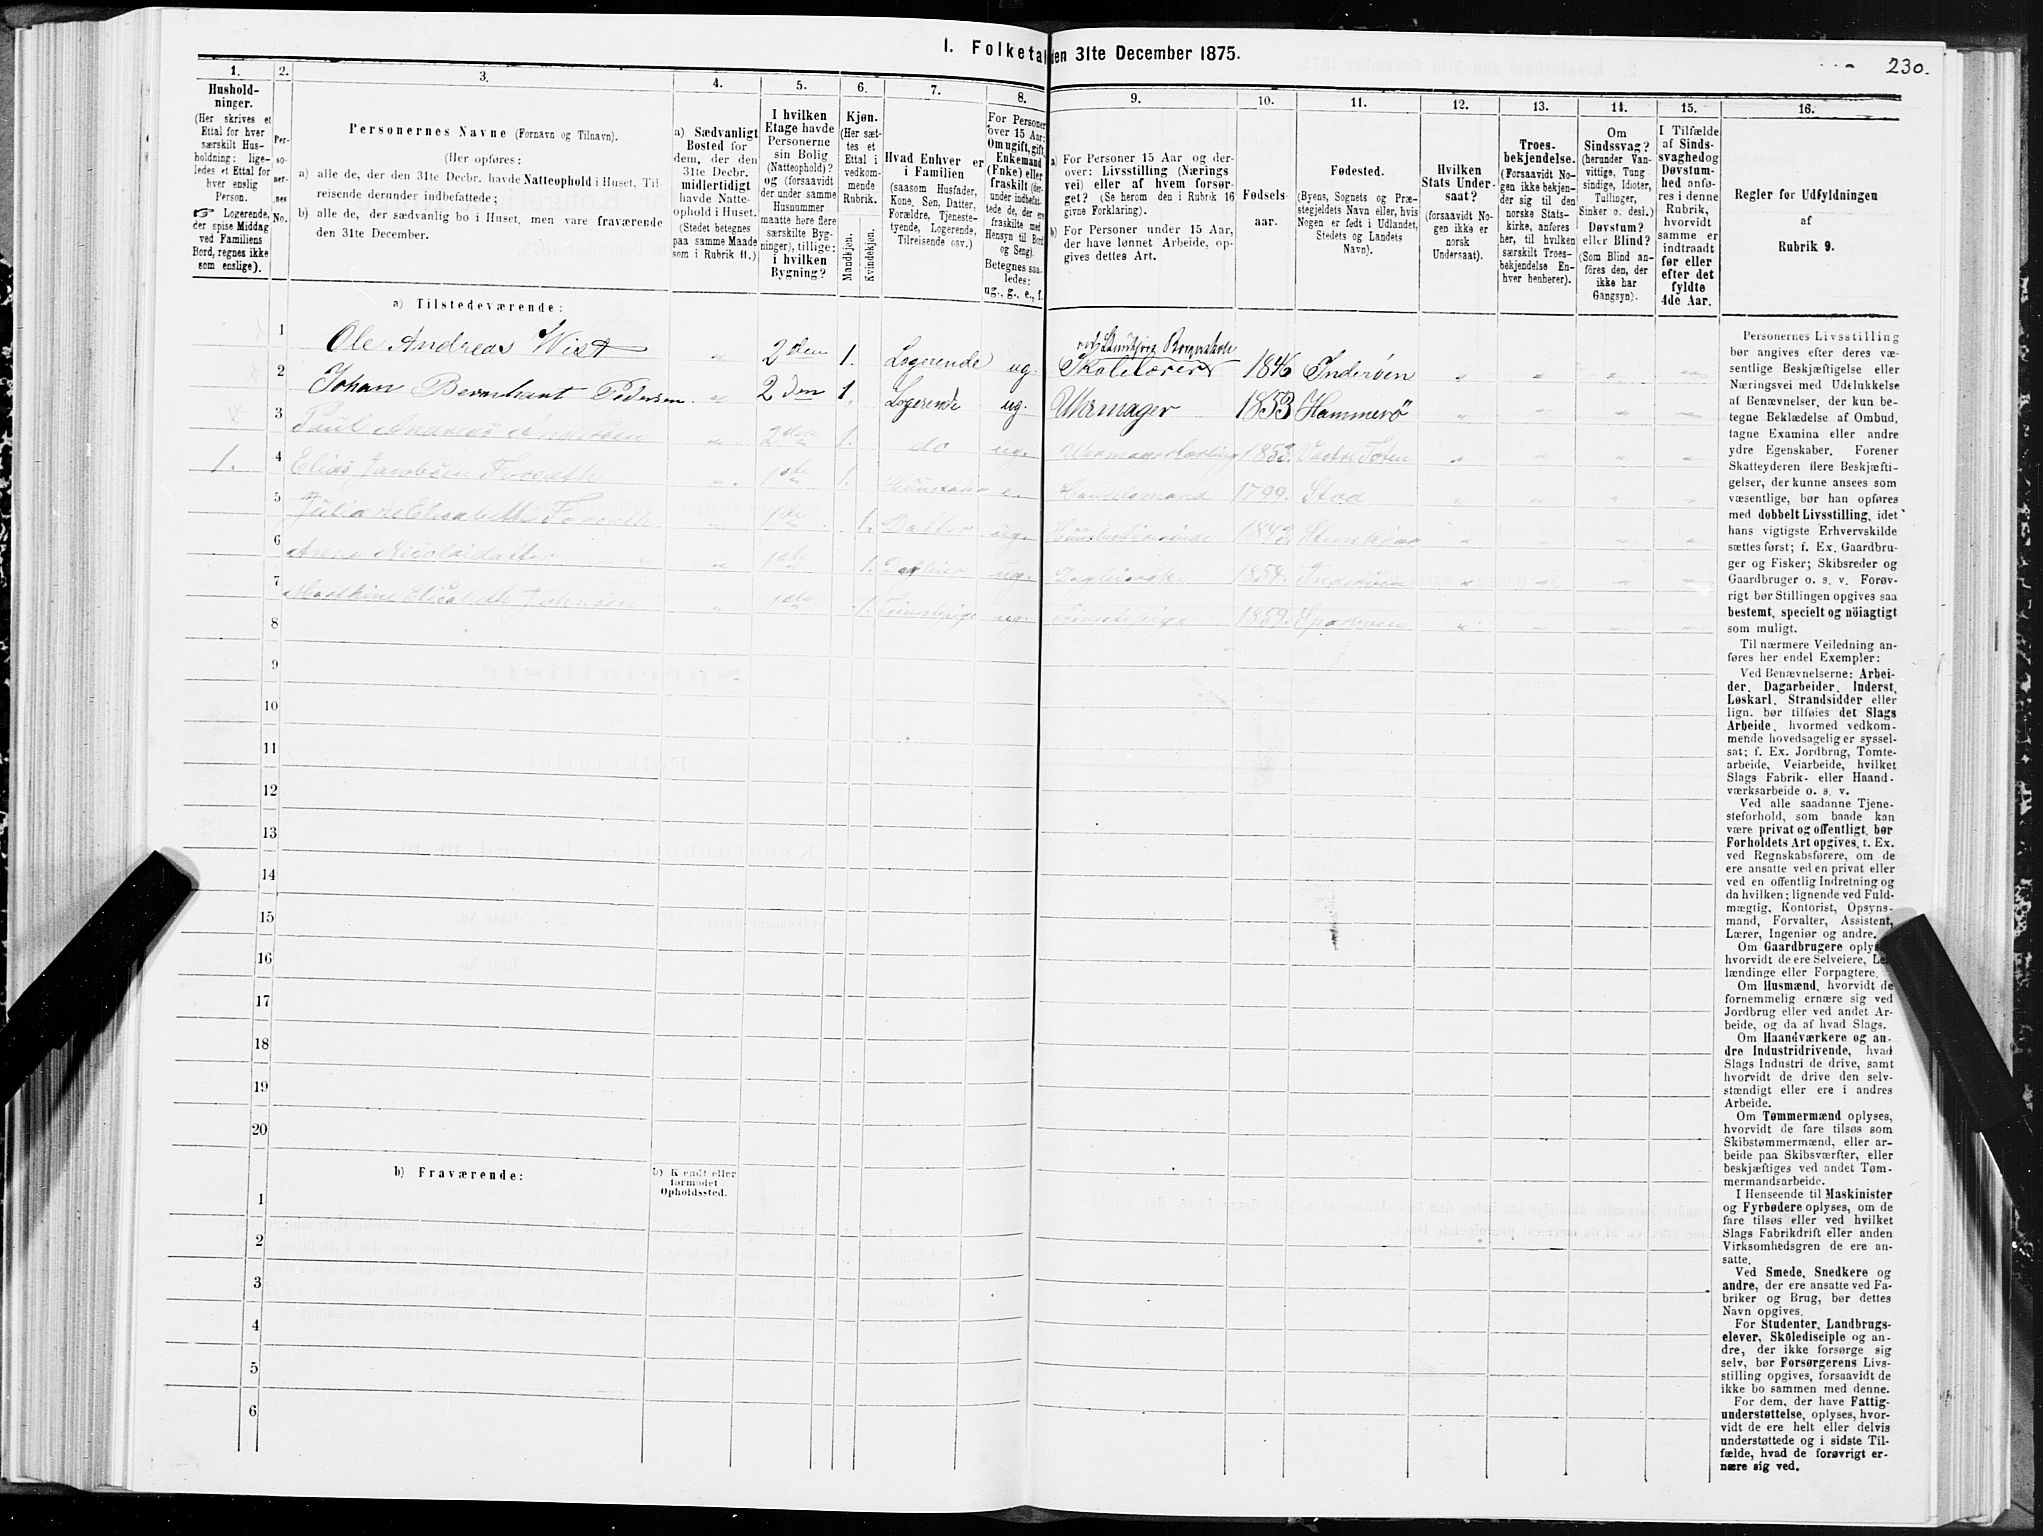 1. Folketal den 31te December 1875.
230.
1. 2. 3. 4. 5. 6. 7. 8. 9. 10. 11. 12. 13. 14. 15. 16.
Hushold-
ninger.
(Her skrives et
Ettal for hver
særskilt Hus-
holdning; lige-
ledes et Ettal for
hver enslig
Person.
☞ Logerende,
der spise Middag
ved Familiens
Bord, regnes ikke
som enslige).
Per-
so-
ner-
nes
No.
Personernes Navne (Fornavn og Tilnavn).
(Her opføres:
a) alle de, der den 31te Decbr. havde Natteophold i Huset, Til-
reisende derunder indbefattede;
b) alle de, der sædvanlig bo i Huset, men vare fraværende
den 31te December.
a) Sædvanligt
Bosted for
dem, der den
31te Decbr.
midlertidigt
havde Natte-
ophold i Huset.
(Stedet betegnes
paa samme Maade
som i Rubrik 11.)
I hvilken
Etage havde
Personerne
sin Bolig
(Natteophold)?
og (forsaavidt
der under samme
Husnummer
maatte høre flere
særskilte Byg-
ninger), tillige:
i hvilken
Bygning?
Kjøn.
(Her sæt-
tes et
Ettal i
vedkom-
mende
Rubrik.
Mandkjøn.
Kvindekjøn.
Hvad Enhver er
i Familien
(saasom Husfader,
Kone, Søn, Datter,
Forældre, Tjeneste-
tyende, Logerende,
Tilreisende osv.)
For Personer
over 15 Aar:
Om ugift, gift,
Enkemand
(Enke) eller
fraskilt (der-
under indbefat-
tede de, der ere
fraskilte med
Hensyn til Bord
og Seng).
Betegnes saa-
ledes:
ug., g., e., f.
a) For Personer 15 Aar og der-
over: Livsstilling (Nærings
vei) eller af hvem forsør-
get? (Se herom den i Rubrik 16
givne Forklaring).
b) For Personer under 15 Aar,
der have lønnet Arbeide, op-
gives dettes Art.
Fødsels-
aar.
Fødested.
(Byens, Sognets og Præ-
stegjeldets Navn eller, hvis
Nogen er født i Udlandet,
Stedets og Landets
Navn).
Hvilken
Stats Under-
saat?
(forsaavidt No-
gen ikke er
norsk
Undersaat).
Troes-
bekjendelse.
(Forsaavidt No-
gen ikke bekjen-
der sig til den
norske Stats-
kirke, anføres
her, til hvilken
særskilt Troes-
bekjendelse En-
hver henhører).
Om
Sindssvag?
(herunder Van-
vittige, Tung
sindige, Idioter,
Tullinger,
Sinker o. desl.)
Døvstum?
eller Blind?
(Som Blind an-
føres den, der
ikke har
Gangsyn).
I Tilfælde
af Sinds-
svaghedog
Døvstum-
hed anfø-
res i denne
Rubrik,
hvorvidt
samme er
indtraadt
før eller
efter det
fyldte
4de Aar.
Regler for Udfyldningen
af
Rubrik 9.
a) Tilstedeværende:
1 Ole Andreas Wist „ 2den 1. Logerende ug. Skolelærer 1846 Inderøen „ „ „ „
2 Johan Bernhart Pedersen „ 2den 1. Logerende ug. Uhrmager 1853 Hammerö „ „ „ „
3 Paul Andreas „ 2den 1. do ug. 1853. Toten „ „ „ „
1. 4 Elias Jacobsen „ 1ste 1. e. Handelsmand 1799. Stod „ „ „ „
5 Forseth „ 1ste 1. Datter ug. 1843. „ „ „ „
6 Anne Nicolaidatter „ 1ste 1. ug. 1854. Inderøen „ „ „ „
7 Elisabeth Johnsen „ 1ste 1. ug. 1859. Sparboen „ „ „ „
8
9
10
11
12
13
14
15
16
17
18
19
20
b) Fraværende:
b) Kjendt eller
formodet
Opholdssted.
1
2
3
4
5
6
Personernes Livsstilling
bør angives efter deres væ-
sentlige Beskjæftigelse eller
Næringsvei med Udelukkelse
af Benævnelser, der kun be-
tegne Beklædelse af Ombud,
tagne Examina eller andre
ydre Egenskaber. Forener
Skatteyderen flere Beskjæfti-
gelser, der kunne ansees som
væsentlige, bør han opføres
med dobbelt Livsstilling, idet
hans vigtigste Erhvervskilde
sættes først; f. Ex. Gaardbru-
ger og Fisker; Skibsreder og
Gaardbruger o. s. v. Forøv-
rigt bør Stillingen opgives saa
bestemt, specielt og nöiagtigt
som muligt.
Til nærmere Veiledning an-
føres her endel Exempler:
Ved Benævnelserne: Arbei-
der, Dagarbeider, Inderst,
Løskarl, Strandsidder eller
lign. bør tilføies det Slags
Arbeide, hvormed vedkom-
mende hovedsagelig er syssel-
sat; f. Ex. Jordbrug, Tomte-
arbeide, Veiarbeide, hvilket
Slags Fabrik- eller Haand-
værksarbeide o. s. v.
Ved alle saadanne Tjene-
steforhold, som baade kan
være privat og offentligt, bør
Forholdets Art opgives, t. Ex.
ved Regnskabsførere, om de
ere ansatte ved en privat eller
ved en offentlig Indretning og
da hvilken; lignende ved Fuld-
mægtig, Kontorist, Opsyns-
mand, Forvalter, Assistent,
Lærer, Ingeniør og andre.
Om Gaardbrugere oplyses,
hvorvidt de ere Selveiere, Lei-
lændinge eller Forpagtere.
Om Husmænd, hvorvidt de
fornemmelig ernære sig ved
Jordbrug eller ved andet Ar-
beide, og da af hvad Slags.
Om Haandværkere og an-
dre Industridrivende, hvad
Slags Industri de drive, samt
hvorvidt de drive den selv-
stændigt eller ere i andres
Arbeide.
Om Tømmermænd oplyses,
hvorvidt de fare tilsøs som
Skibstømmermænd, eller ar-
beide paa Skibsværfter, eller
beskjæftiges ved andet Tøm-
mermandsarbeide.
I Henseende til Maskinister
og Fyrbødere oplyses, om de
fare tilsøs eller ved hvilket
Slags Fabrikdrift eller anden
Virksomhedsgren de ere an-
satte.
Ved Smede, Snedkere og
andre, der ere ansatte ved Fa-
briker og Brug, bør dettes
Navn opgives.
For Studenter, Landbrugs-
elever, Skölediscipleog an-
dre, der ikke forsørge sig
selv, bør Forsørgerens Livs-
stilling opgives, forsaavidt de
ikke bo sammen med denne.
For dem, der have Fattig-
understøttelse, oplyses, hvor-
vidt de ere helt eller delvis
understøttede og i sidste Til-
fælde, hvad de forøvrigt er-
nære sig ved.